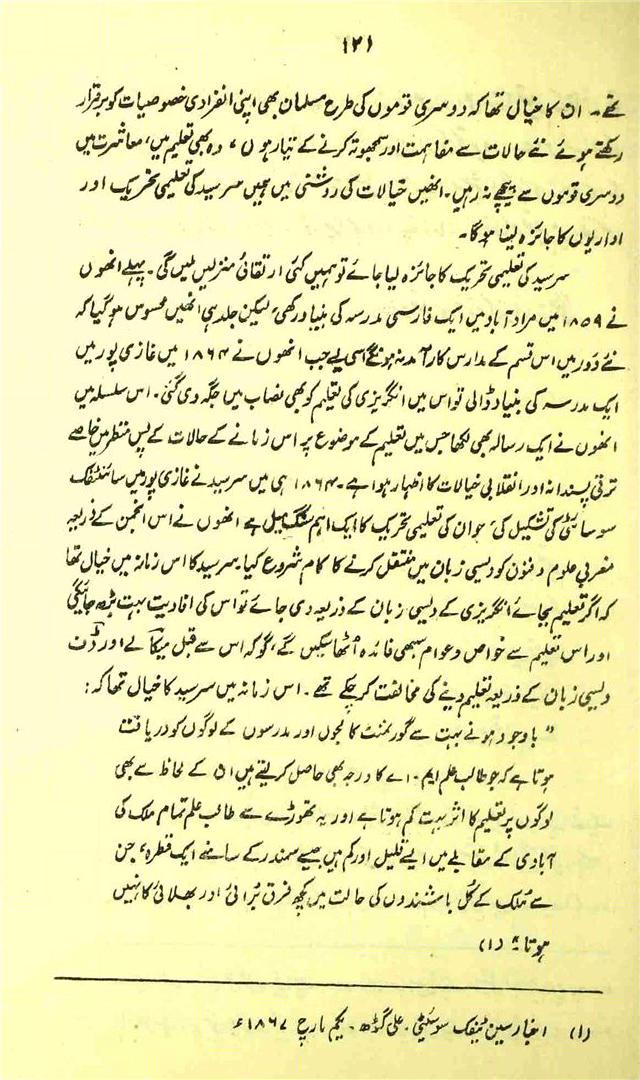 ۱۲۱
تھے۔ ان کا خیال تھا کہ دوسری قوموں کی طرح مسلمان بھی اپنی انفرادی خصوصیات کو برقرار
رکھتے ہوئے نئے حالات سے مفاہمت اور سمجھوتہ کرنے کے تیار ہوں، وہ بھی تعلیم میں، معاشرت میں
دوسری قوموں سے پیچھے نہ رہیں۔ انھیں خیالات کی روشنی میں ہمیں سرسید کی تعلیمی تحریک اور
اداریوں کا جائزہ لینا ہوگا۔
سرسید کی تعلیمی تحریک کا جائزہ لیا جائے تو ہمیں کئی ارتقائی منزلیں ملیں گی۔ پہلے انھوں
نے ۱۸۵۹ میں مرادآباد میں ایک فارسی مدرسہ کی بنیاد رکھی، لیکن جلد ہی انھیں محسوس ہو گیا کہ
نئے دور میں اس قسم کے مدارس کارآمد نہ ہونگے اسی لیے جب انھوں نے ۱۸۶۴ میں غازی پور میں
ایک مدرسہ کی بنیاد ڈالی تو اس میں انگریزی کی تعلیم کو بھی نصاب میں جگہ دی گئی۔ اس سلسلہ میں
انھوں نے ایک رسالہ بھی لکھا جس میں تعلیم کے موضوع پر اس زمانے کے حالات کے پس منظر میں خاصے
ترقی پسندانہ اور انقلابی خیالات کا اظہار ہوا ہے۔ ۱۸۶۴ ہی میں سرسید نے غازی پور میں سائنٹفک
سوسائٹی کی تشکیل کی، جو ان کی تعلیمی تحریک کا ایک اہم سنگ میل ہے انھوں نے اس انجمن کے ذریعہ
مغربی علوم و فنون کو دیسی زبان میں منتقل کرنے کا کام شروع کیا۔ سرسید کا اس زمانہ میں خیال تھا
کہ اگر تعلیم بجائے انگریزی کے دیسی زبان کے ذریعہ دی جائے تو اس کی افادیت بہت بڑھ جائیگی
اور اس تعلیم سے خواص و عوام سبھی فائدہ اٹھا سکیں گے، گو کہ اس سے قبل میکالے اور ڈف
دیسی زبان کے ذریعہ تعلیم دینے کی مخالفت کر چکے تھے۔ اس زمانہ میں سرسید کا خیال تھا کہ:
"باوجود ہونے بہت سے گورنمنٹ کالجوں اور مدرسوں کے لوگوں کو دریافت
ہوتا ہے کہ جو طالب علم ایم۔ اے کا درجہ بھی حاصل کرتے ہیں ان کے لحاظ سے بھی
لوگوں پر تعلیم کا اثر بہت کم ہوتا ہے اور یہ تھوڑے سے طالب علم تمام ملک کی
آبادی کے مقابلے میں ایسے قلیل اور کم ہیں جیسے سمندر کے سامنے ایک قطرہ، جن
سے ملک کے کل باشندوں کی حالت میں کچھ فرق برائی اور بھلائی کا نہیں
ہوتا" (۱)
(۱) اخبار سین ٹیفک سوسیٹی۔ علی گڑھ۔ یکم مارچ ۱۸۶۷ء